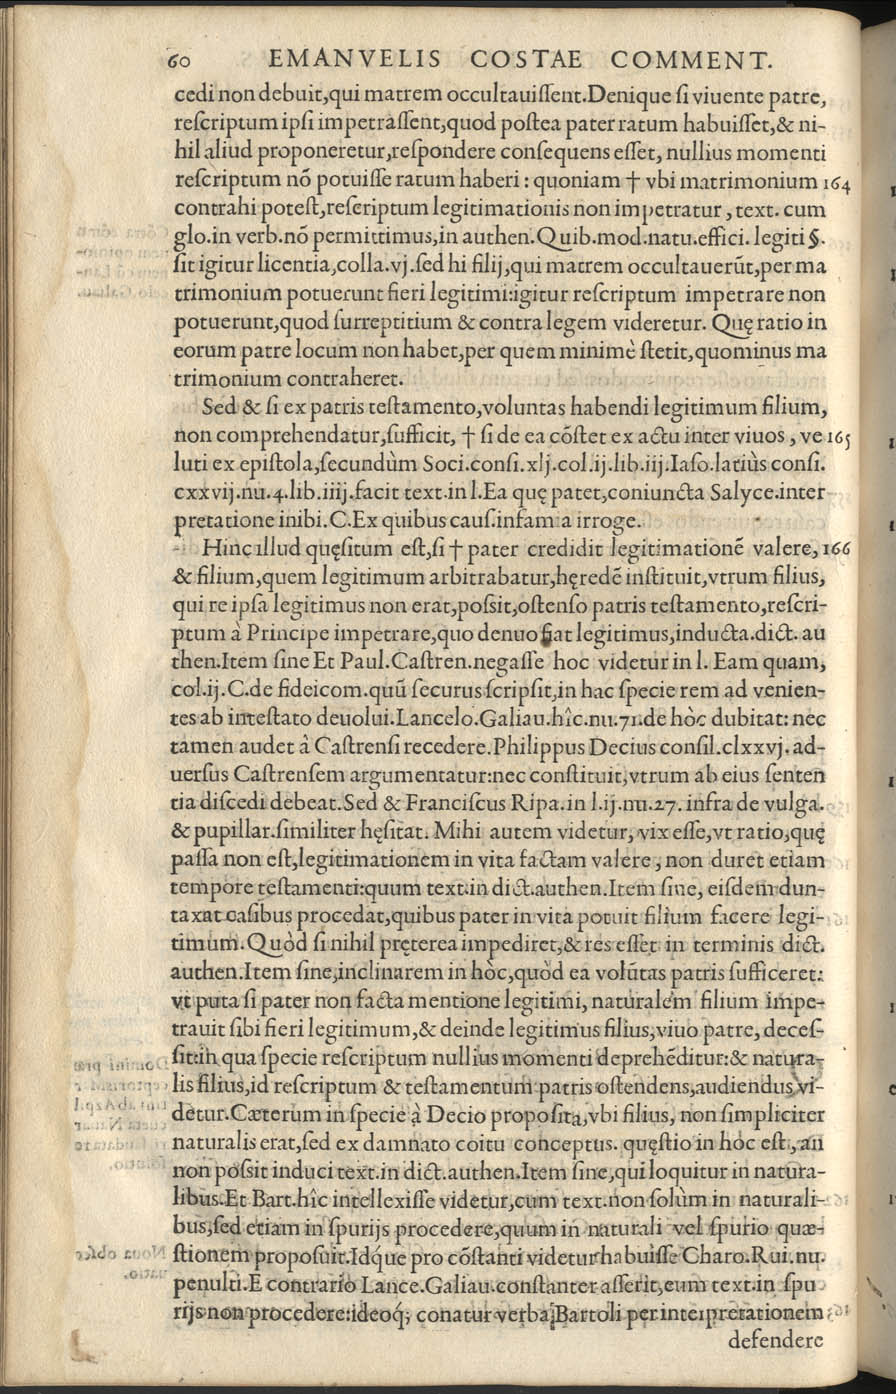 60 EMANVELIS COSTAE COMMENT.
cedi non debuit,qui matrem occultauiſſent.Denique ſi viuente patre,
reſcriptum ipſi impetraſſent,quod poſtea pater ratum habuiſſet,& ni-
hil aliud proponeretur,reſpondere conſequens eſſet, nullius momenti
reſcriptum nõ potuiſſe ratum haberi : quoniam † vbi matrimonium 164
contrahi poteſt,reſcriptum legitimationis non impetratur , text. cum
glo.in verb.nõ permittimus,in authen.Quib.mod.natu.effici. legiti §.
ſit igitur licentia,colla.vj.ſed hi filij,qui matrem occultauerũt,per ma
trimonium potuerunt fieri legitimi:igitur reſcriptum impetrare non
potuerunt,quod ſurreptitium & contra legem videretur. Quę ratio in
eorum patre locum non habet,per quem minimè ſtetit,quominus ma
trimonium contraheret.
Sed & ſi ex patris teſtamento,voluntas habendi legitimum filium,
non comprehendatur,ſufficit, † ſi de ea cõſtet ex actu inter viuos , ve 165
luti ex epiſtola,ſecundùm Soci.conſi.xlj.col.ij.lib.iij.Iaſo.latiùs conſi.
cxxvij.nu.4.lib.iiij.facit text.in l.Ea quę patet,coniuncta Salyce.inter
pretatione inibi.C.Ex quibus cauſ.infamia irroge.
Hinc illud quęſitum eſt,ſi † pater credidit legitimationẽ valere, 166
& filium,quem legitimum arbitrabatur,hęredẽ inſtituit,vtrum filius,
qui re ipſa legitimus non erat,poſsit,oſtenſo patris teſtamento,reſcri-
ptum à Principe impetrare,quo denuo fiat legitimus,inducta.dict. au
then.Item ſine Et Paul.Caſtren.negaſſe hoc videtur in l. Eam quam,
col.ij.C.de fideicom.quũ ſecurus ſcripſit,in hac ſpecie rem ad venien-
tes ab inteſtato deuolui.Lancelo.Galiau.hîc.nu.71.de hòc dubitat: nec
tamen audet â Caſtrenſi recedere.Philippus Decius conſil.clxxvj. ad-
uerſus Caſtrenſem argumentatur:nec conſtituit,vtrum ab eius ſenten
tia diſcedi debeat.Sed & Franciſcus Ripa.in l.ij.nu.27. infra de vulga.
& pupillar.ſimiliter hęſitat. Mihi autem videtur, vix eſſe,vt ratio,quę
paſſa non eſt,legitimationem in vita factam valere , non duret etiam
tempore teſtamenti:quum text.in dict.authen.Item ſine, eiſdem dun-
taxat caſibus procedat,quibus pater in vita potuit filium facere legi-
timum.Quòd ſi nihil pręterea impediret,& res eſſet in terminis dict.
authen.Item ſine,inclinarem in hòc,quòd ea volũtas patris ſufficeret:
vt puta ſi pater non facta mentione legitimi, naturalem filium impe-
trauit ſibi fieri legitimum,& deinde legitimus filius,viuo patre, deceſ-
ſit:in qua ſpecie reſcriptum nullius momenti deprehẽditur:& natura-
lis filius,id reſcriptum & teſtamentum patris oſtendens,audiendus vi-
detur.Cæterùm in ſpecie à Decio propoſita,vbi filius, non ſimpliciter
naturalis erat,ſed ex damnato coitu conceptus. quęſtio in hoc eſt, an
non poſsit induci text.in dict.authen.Item ſine,qui loquitur in natura-
libus.Et Bart.hîc intellexiſſe videtur,cum text.non ſolùm in naturali-
bus,ſed etiam in ſpurijs procedere,quum in naturali vel ſpurio quæ-
ſtionem propoſuit.Idq́ue pro cõſtanti videtur habuiſſe Charo.Rui.nu.
penulti.E contrario Lance.Galiau.conſtanter aſſerit,eum text.in ſpu
rijs non procedere:ideoq́; conatur verba Bartoli per interpretationem
defendere